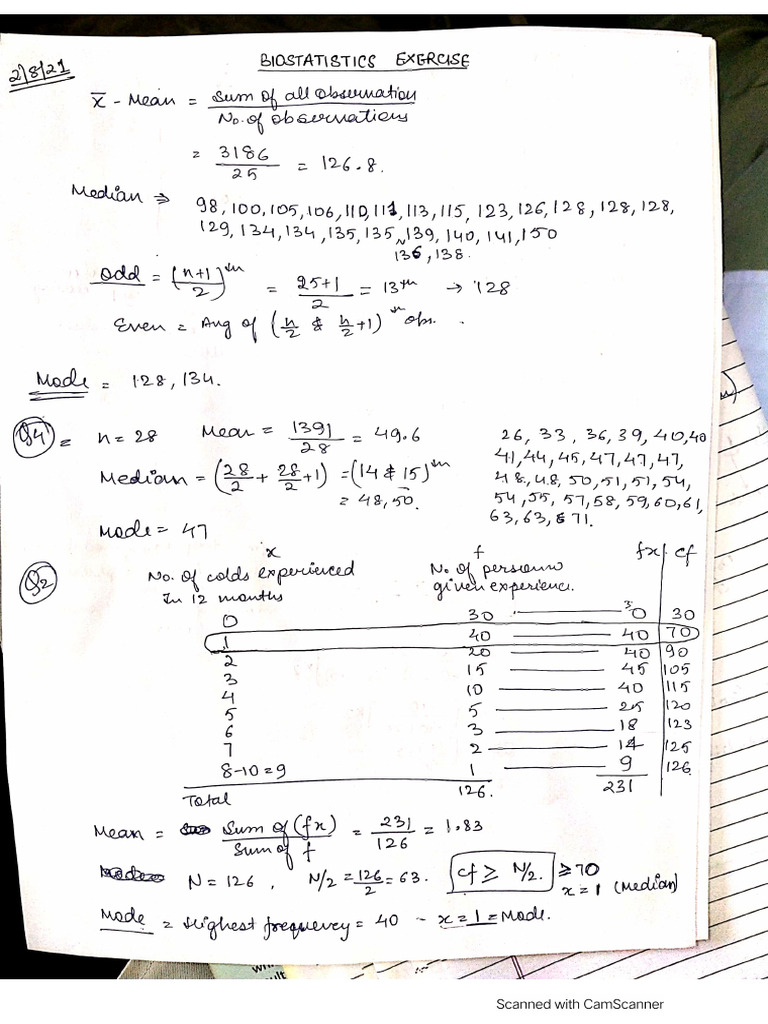 2/8/21
BIOSTATISTICS EXERCISE
x̄ - Mean = Sum of all observation / No. of observations
= 3186 / 25 = 126.8.
Median ⇒ 98, 100, 105, 106, 110, 111, 113, 115, 123, 126, 128, 128, 128,
129, 134, 134, 135, 135, 139, 140, 141, 150
136, 138.
Odd = (n+1 / 2)th = 25+1 / 2 = 13th → 128
Even = Avg of (n/2 & n/2 +1)th obs.
Mode = 128, 134.
Q4 = n = 28 Mean = 1391 / 28 = 49.6
Median = (28/2 + 28/2 +1) = (14 & 15)th
= 48, 50.
Mode = 47
26, 33, 36, 39, 40, 40
41, 44, 45, 47, 47, 47,
48, 48, 50, 51, 51, 54,
54, 55, 57, 58, 59, 60, 61,
63, 63, & 71.
Q2
x f fx cf
No. of colds experienced No. of persons
In 12 months given experience.
0 30 0 30
1 40 40 70
2 20 40 90
3 15 45 105
4 10 40 115
5 5 25 120
6 3 18 123
7 2 14 125
8-10 = 9 1 9 126
Total 126. 231
Mean = Sum of (fx) / Sum of f = 231 / 126 = 1.83
N = 126, N/2 = 126/2 = 63. cf ≥ N/2. ≥ 70
x = 1 (Median)
Mode = Highest frequency = 40 - x = 1 = Mode.
Scanned with CamScanner